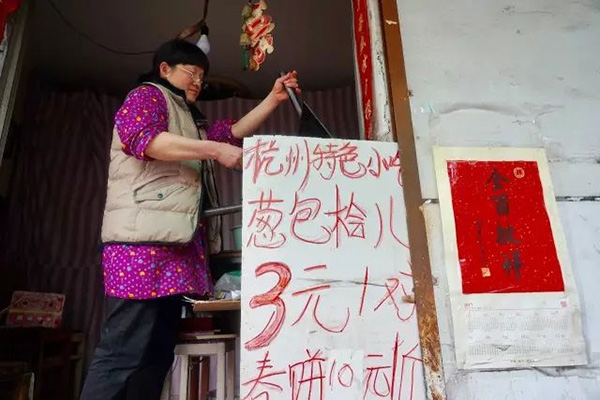 杭州特色小吃
葱包桧儿
3元1对
春饼10元1斤